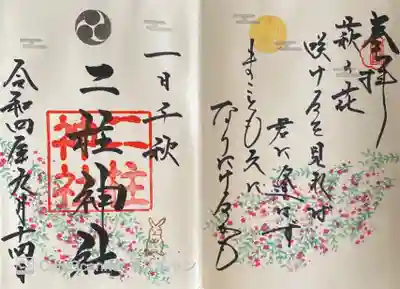 奉拝
萩の花
咲けるを見れば
君に逢はず
まことも久に
なりにけるかも
一日千秋
二柱神社
二柱
神社
令和四年九月十四日